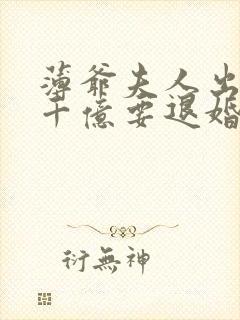 薄爺夫人出
十億要退婚
衍無神